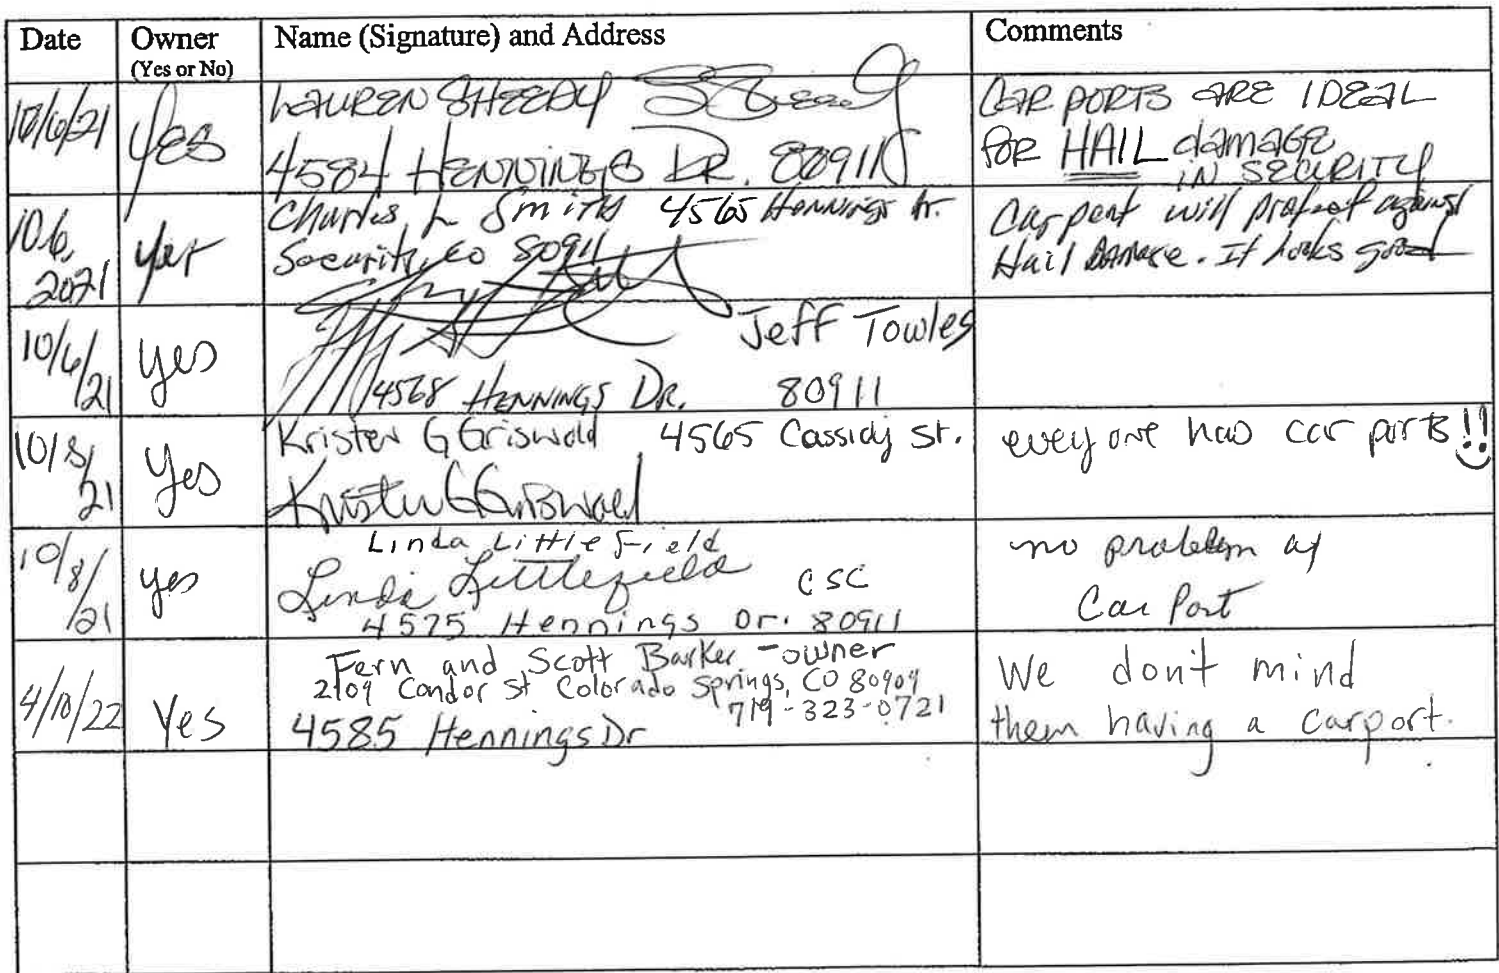 Date Owner (Yes or No) Name (Signature) and Address Comments
10/6/21 Yes LAUREN SHEEDY
4584 HENNINGS DR. 80911
CAR PORTS ARE IDEAL
FOR HAIL damage
IN SECURITY
10.6.2021 yes Charles L Smith 4565 Hennings Dr.
Security, Co 80911
Carport will protect against
Hail Damage. It looks good
10/6/21 yes Jeff Towles
4568 HENNINGS DR. 80911
10/8/21 Yes Kristen G Griswold 4565 Cassidy St.
Kristen G Griswold
everyone has car ports!!
10/8/21 yes Linda Littlefield
Linda Littlefield CSC
4575 Hennings Dr. 80911
no problem of
Car Port
4/10/22 Yes Fern and Scott Barker - owner
2109 Condor St Colorado Springs, CO 80909
719-323-0721
4585 Hennings Dr
We don't mind
them having a carport.